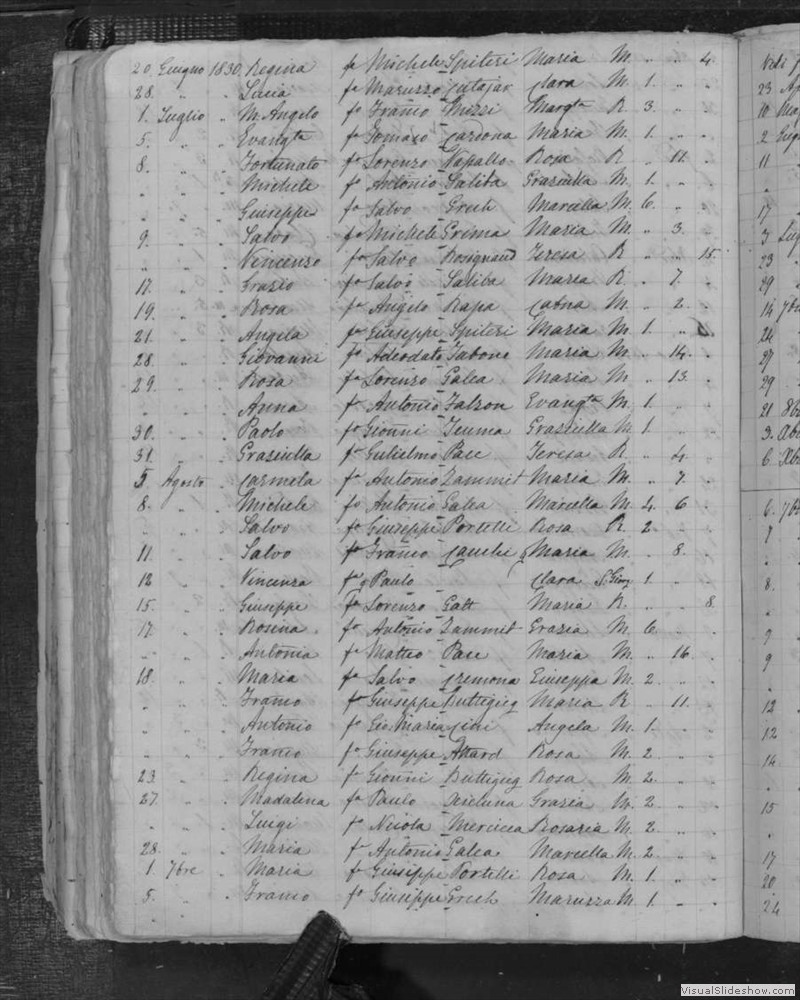 20 Giugno 1830 Regina fa Michele Spiteri Maria M. " " 4
28. " " Lucia fa Maruzzo Cutajar Clara M. 1. " "
1. Luglio " M. Angelo fo Franco Mizzi Margta R. 3. " "
5. " " Evangta fa Tomaso Cardona Maria M. 1. " "
8. " " Fortunato fo Lorenzo Vapallo Rosa R. " 11.
" " " Michele fo Antonio Saliba Graziulla M. 1. "
" " " Giuseppe fo Salvo Grech Marcella M. 6. "
9. " " Salvo fo Michele Grima Maria M. " 3. "
" " " Vincenzo fo Salvo Rosignaud Teresa R " " 15.
17. " " Grazio fo Salvo Saliba Maria R. " 7. "
19. " " Rosa fa Angelo Rapa Catna M. " 2. "
21. " " Angela fa Giuseppe Spiteri Maria M. 1. "
28. " " Giovanni fo Adeodato Tabone Maria M. " 14. "
29. " " Rosa fa Lorenzo Galea Maria M. " 13.
" " " Anna fa Antonio Falzon Evangta M. 1. "
30. " " Paolo fo Gionni Xeuma Graziella M. 1
31. " " Graziella fa Gulielmo Pace Teresa R. " 4.
5 Agosto " Carmela fa Antonio Zammit Maria M. " 7.
8. " " Michele fo Antonio Galea Marcella M. 4. 6
" " " Salvo fo Giuseppe Portelli Rosa R. 2.
11. " " Salvo fo Franco Maria M. " 8.
12 " " Vincenza fa Paulo Clara 1.
15. " " Giuseppe fo Lorenzo Gatt Maria R. " " 8
17. " " Rosina fa Antonio Zammit Grazia M. 6
" " " Antonia fa Matteo Pace Maria M. " 16.
18. " " Maria fa Salvo Cremona Giuseppa M. 2
" " " Franco fo Giuseppe Buttigieg Maria R " 11.
" " " Antonio fo Gio. Maria Cini Angela M. 1.
" " " Franco fo Giuseppe Attard Rosa M. 2
23. " " Regina fa Gionni Buttigieg Rosa M. 2
27. " " Madalena fa Paulo Xicluna Grazia M. 2
" " " Luigi fo Nicola Mercieca Rosaria M. 2
28. " " Maria fa Antonio Galea Marcella M. 2
1. 7bre " Maria fa Giuseppe Portelli Rosa M. 1.
5. " " Franco fo Giuseppe Grech Maruzza M. 1.
23
10
2
11
17
3
23
29
14
26
27
29
21
3
6
6
7
8
7
9
12
12
14
15
17
20
24
VisualSlideshow.com